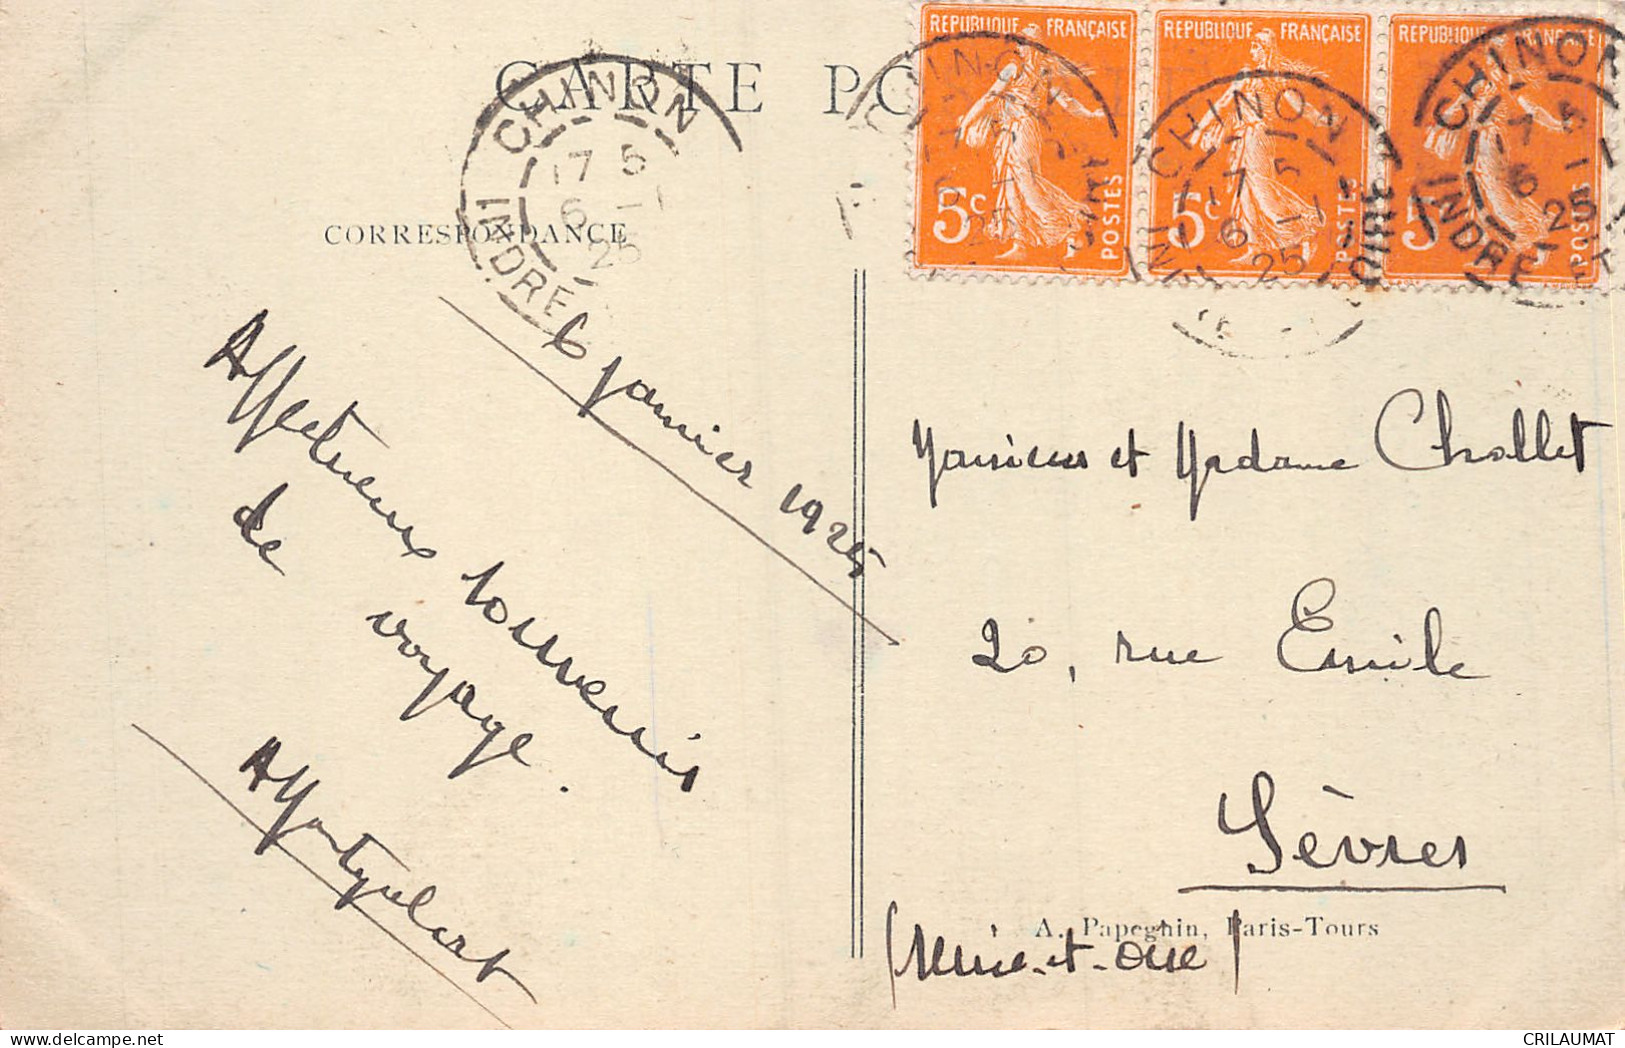 CARTE PO
CORRESPONDANCE
REPUBLIQUE FRANÇAISE
5c
POSTES
REPUBLIQUE FRANÇAISE
5c
POSTES
REPUBLIQUE FRANÇAISE
5
POSTES
CHINON
17 5
6 - 1
25
INDRE
CHINON
17 5
6 - 1
25
INDRE
LOIRE
CHINON
17 5
6 - 1
25
INDRE ET
6 Janvier 1925
Affectueux souvenir
de voyage.
Monsieur et Madame Chollet
20, rue Emile
Sèvres
(Seine-et-Oise)
A. Papeghin, Paris-Tours
CRILAUMAT